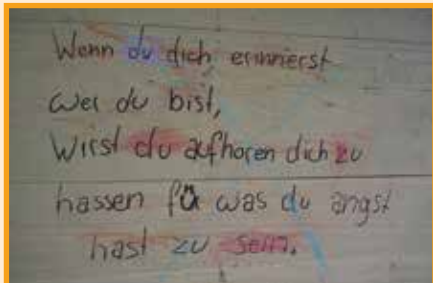 Wenn du dich erinnerst
wer du bist,
Wirst du aufhoren dich zu
hassen für was du angst
hast zu sein.